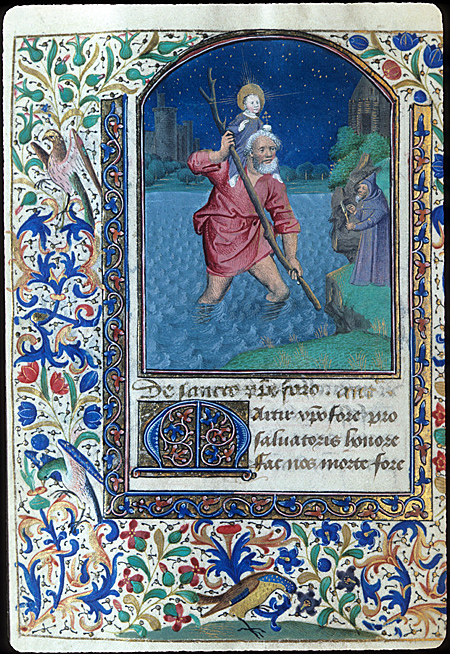 De sancto xp̄oforo. ant
Martir xp̄ofore pro
saluatoris honore
fac nos morte fore